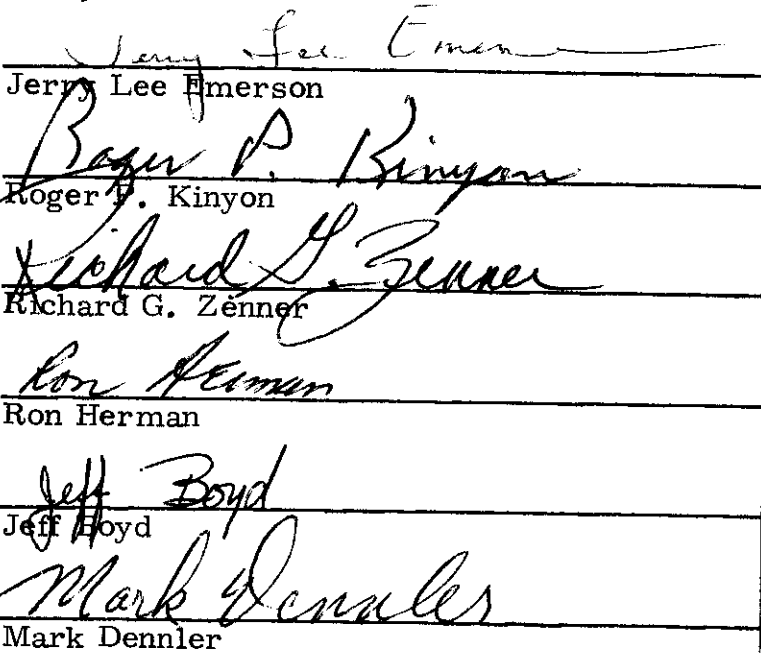 Jerry Lee Emerson
Jerry Lee Emerson
Roger P. Kinyon
Roger P. Kinyon
Richard G. Zenner
Richard G. Zenner
Ron Herman
Ron Herman
Jeff Boyd
Jeff Boyd
Mark Dennler
Mark Dennler